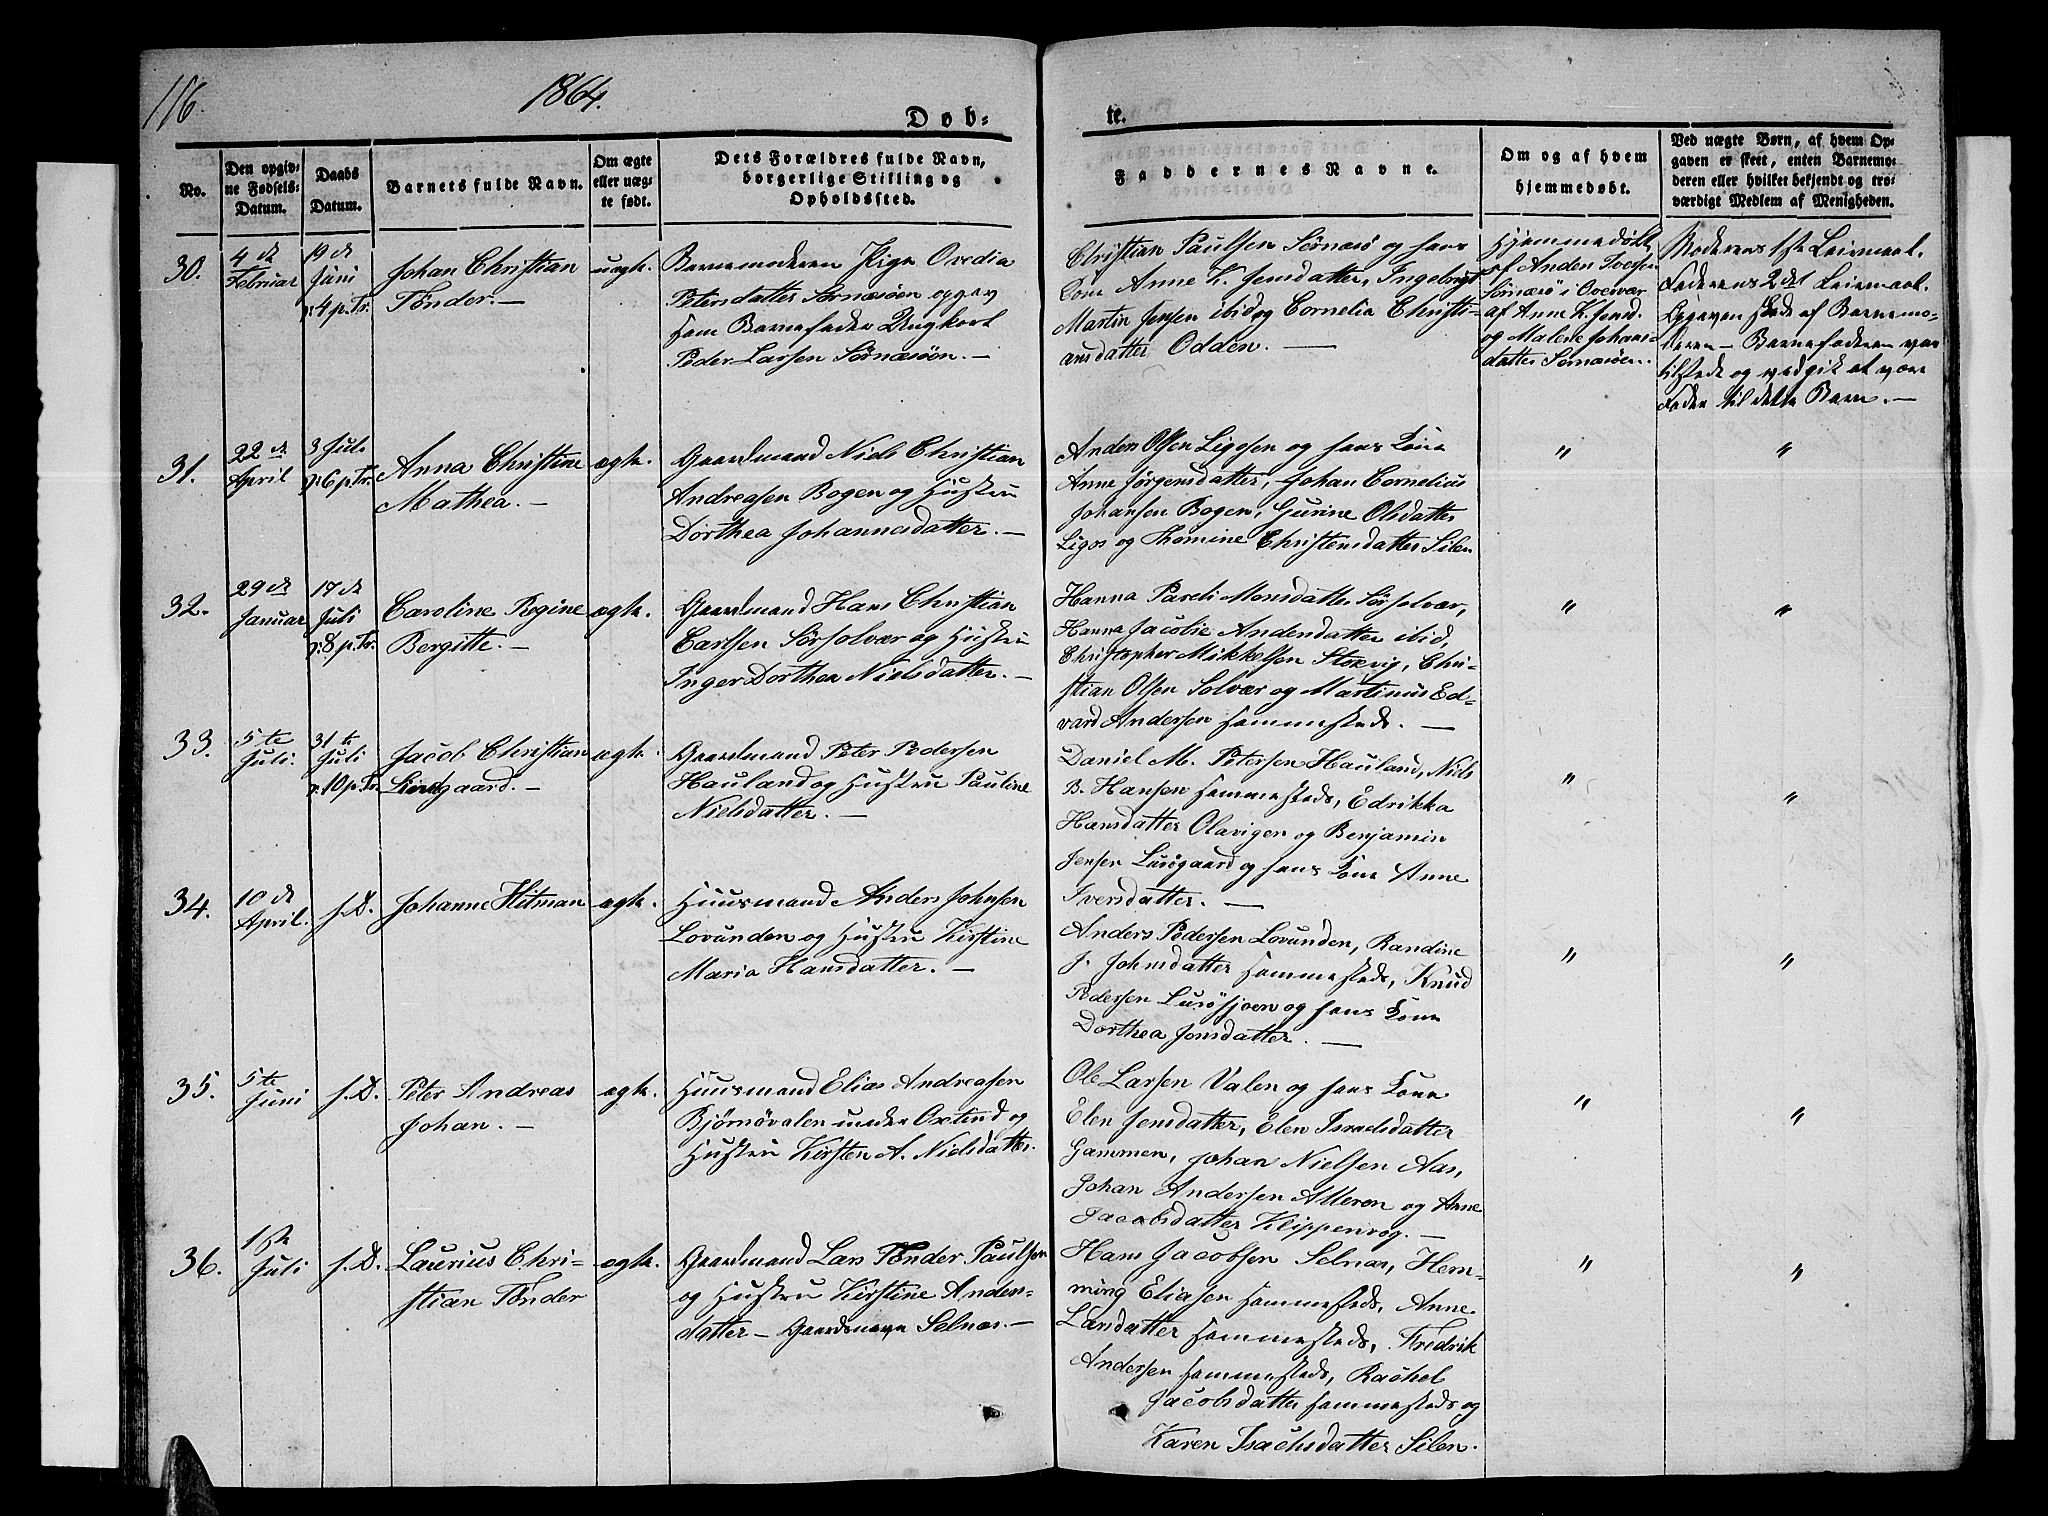 116.
1864.
Døb-
te.
No.
Den opgiv-
ne Fødsels-
Datum.
Daabs
Datum.
Barnets fulde Navn.
Om ægte
eller uæg-
te født.
Dets Forældres fulde Navn,
borgerlige Stilling og
Opholdssted.
Faddernes Navne.
Om og af hvem
hjemmedøbt.
Ved uægte Børn, af hvem Op-
gaven er skeet, enten Barnemo-
deren eller hvilket bekjendt og tro-
værdigt Medlem af Menigheden.
30.
4de
Februar
19de
Juni
4 p. Tr.
Johan Christian
Tønder. —
uægte.
Barnemoderen Pige Ovedia
Petersdatter Sørnæsøen opgav
som Barnefader Ungkarl
Peder Larsen Sørnæsøen. —
Christian Paulsen Sørnæsø og hans
Kone Anne K. Jensdatter, Ingebrigt
Martin Jensen ibid og Cornelia Christi-
ansdatter Odden. —
Hjemmedøbt
af Anders
Sørnæsø i Overvær
af Anne K. Jensd.
og Malene Johans-
datter Sørnæsøen.
Moderens 1ste Leiermaal.
Faderens 2det Leiermaal.
Opgaven skede af Barnemo-
deren — Barnefaderen var
tilstede og vedgik at være
Fader til dette Barn. —
31.
22de
April
3 Juli
6 p. Tr.
Anna Christine
Mathea. —
ægte.
Gaardmand Niels Christian
Andreasen Bogen og Hustru
Dorthea Johannesdatter. —
Anders Olsen Ligosen og hans Kone
Anne Jørgensdatter, Johan Cornelius
Johansen Bogen, Gurine Olsdatter
Ligos og Thomine Christensdatter Silen
"
"
32.
29de
Januar
17de
Juli
8 p. Tr.
Caroline Regine
Bergitte. —
ægte.
Gaardmand Hans Christian
Carlsen Sørsolvær og Hustru
Inger Dorthea Nielsdatter. —
Hanna Pareli Monsdatter Sørsolvær,
Hanna Jacobie Andersdatter ibid,
Christopher Mikkelsen Stokvig, Chri-
stian Olsen Solvær og Martinus Ed-
vard Andersen sammesteds. —
"
"
33.
5te
Juli.
31te
Juli
10 p. Tr.
Jacob Christian
Lindgaard. —
ægte.
Gaardmand Peter Pedersen
Hauland og Hustru Pauline
Nielsdatter. —
Daniel M. Petersen Hauland, Niels
B. Hansen sammesteds, Edrikka
Hansdatter Olavigen og Benjamin
Jensen Lurøgaard og hans Kone Anne
Iversdatter. —
"
"
34.
10de
April.
s. D.
Johanne Hitman
ægte.
Huusmand Anders Johnsen
Lovunden og Hustru Kirstine
Maria Hansdatter. —
Anders Pedersen Lovunden, Randine
J. Johnsdatter sammesteds, Knud
Pedersen Lurøsjoen og hans Kone
Dorthea Jonsdatter. —
"
"
35.
5te
Juni
s. D.
Peter Andreas
Johan. —
ægte.
Huusmand Elias Andreasen
Bjørnøvalen under Oxtind og
Hustru Kirsten A. Nielsdatter.
Ole Larsen Valen og hans Kone
Elen Jensdatter, Elen Israelsdatter
Gammen, Johan Nielsen Aas,
Johan Andersen Alleren og Anne
Jacobsdatter Klippenvog. —
"
"
36.
1ste
Juli
s. D.
Laurius Chri-
stian Tønder
ægte.
Gaardmand Lars Tønder Paulsen
og Hustru Kirstine Anders-
datter — Gaardsnavn Selnæs. —
Hans Jacobsen Selnæs, Hem-
ming Eliasen sammesteds, Anne
Larsdatter sammesteds, Fredrik
Andersen sammesteds, Rachel
Jacobsdatter sammesteds og
Karen Isachsdatter Silen.
"
"